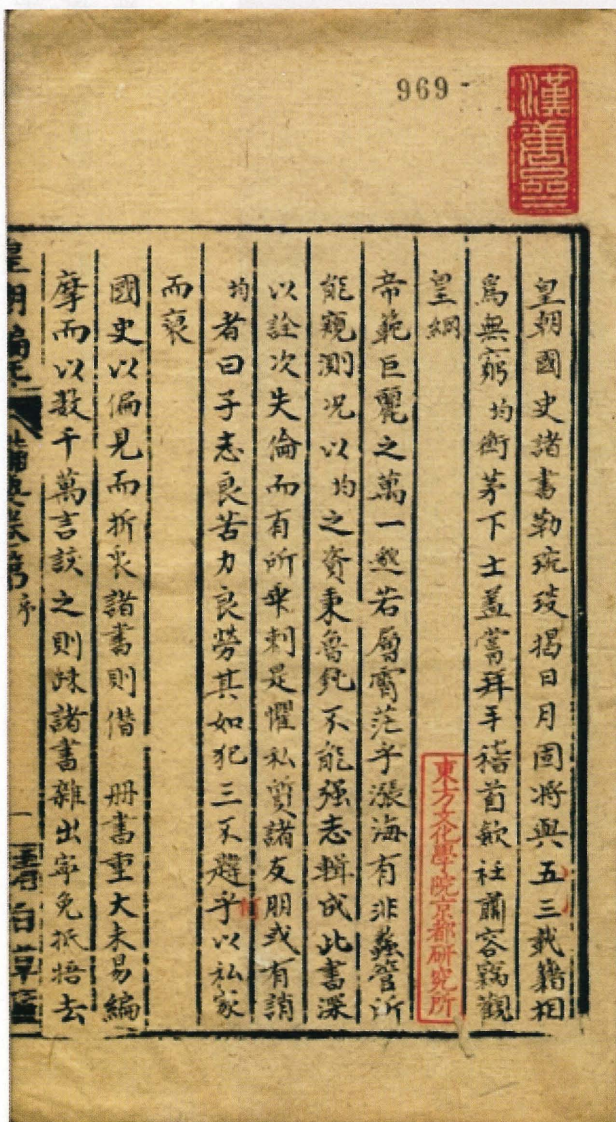 969-
皇朝國史諸書勒琬琰揭日月固將與五三載籍相
為無窮均衡茅下士蓋嘗拜手稽首斂衽肅容竊觀
皇綱
帝範巨麗之萬一邈若層霄茫乎漲海有非蠡管所
能窺測況以均之資稟魯鈍不能强志輯成此書深
以詮次失倫而有所乖剌是懼私質諸友朋或有誚
均者曰子志良苦力良勞其如犯三不韙乎以私家
而裒
國史以偏見而折衷諸書則僭 冊書重大未易編
摩而以數千萬言該之則疎諸書雜出寧免抵捂去
皇朝編年
備要卷第
序
一
東方文化學院京都研究所